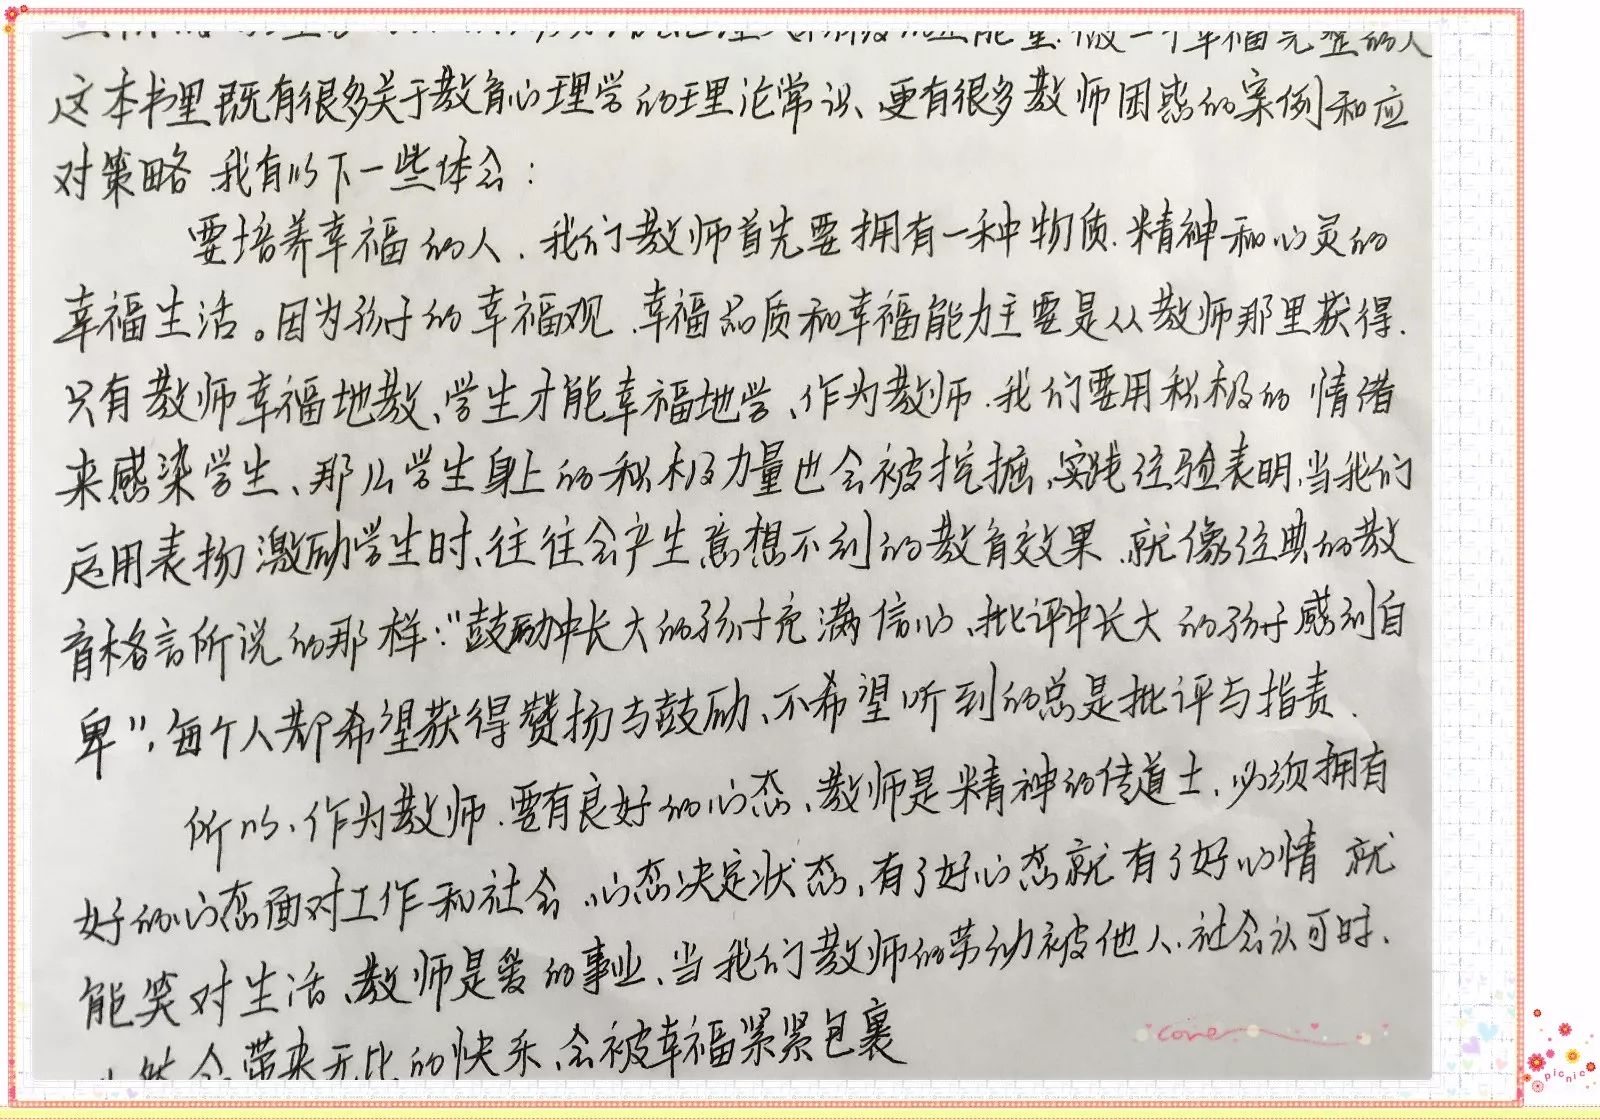 做一个幸福完整的人
这本书里既有很多关于教育心理学的理论常识、更有很多教师困惑的案例和应
对策略.我有以下一些体会:
要培养幸福的人.我们教师首先要拥有一种物质.精神和心灵的
幸福生活。因为孩子的幸福观.幸福品质和幸福能力主要是从教师那里获得.
只有教师幸福地教、学生才能幸福地学、作为教师.我们要用积极的情绪
来感染学生、那么学生身上的积极力量也会被挖掘、实践经验表明.当我们
运用表扬激励学生时、往往会产生意想不到的教育效果.就像经典的教
育格言所说的那样:"鼓励中长大的孩子充满信心、批评中长大的孩子感到自
卑",每个人都希望获得赞扬与鼓励、不希望听到的总是批评与指责.
所以、作为教师.要有良好的心态、教师是精神的传道士.必须拥有
好的心态面对工作和社会.心态决定状态、有了好心态就有了好心情 就
能笑对生活、教师是爱的事业、当我们教师的劳动被他人.社会认可时、
然会带来无比的快乐、会被幸福紧紧包裹
Love
picnic